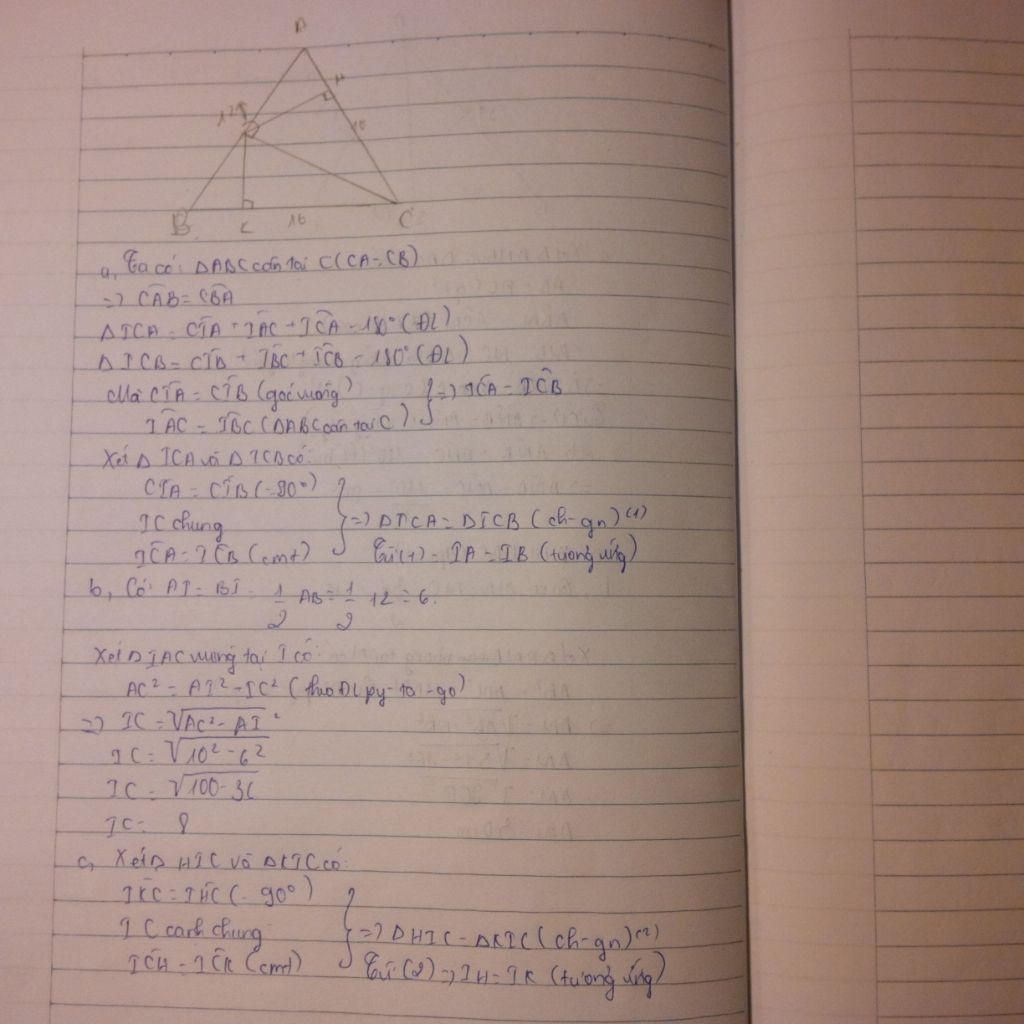 A
H
12
I
10
B
K
10
C
a, Ta có: ΔABC cân tại C (CA = CB)
=> CÂB = CB̂A
ΔICA = CÎA + IÂC + IĈA = 180° (ĐL)
ΔICB = CÎB + IB̂C + IĈB = 180° (ĐL)
Mà CÎA = CÎB (góc vuông) } => IĈA = IĈB
IÂC = IB̂C (ΔABC cân tại C)
Xét Δ ICA và Δ ICB có:
CÎA = CÎB (= 90°)
IC chung } => ΔICA = ΔICB (ch-gn) (1)
IĈA = IĈB (cmt) Từ (1) = IA = IB (tương ứng)
b, Có: AI = BI = 1/2 AB = 1/2 12 = 6.
Xét Δ IAC vuông tại I có:
AC² = AI² + IC² (theo ĐL py-ta-go)
=> IC = √AC² - AI²
IC = √10² - 6²
IC = √100 - 36
IC = 8
c, Xét Δ HIC và ΔKIC có:
IK̂C = IĤC (= 90°)
IC cạnh chung } => ΔHIC = ΔKIC (ch-gn) (2)
IĈH = IĈK (cmt) Từ (2) => IH = IK (tương ứng)